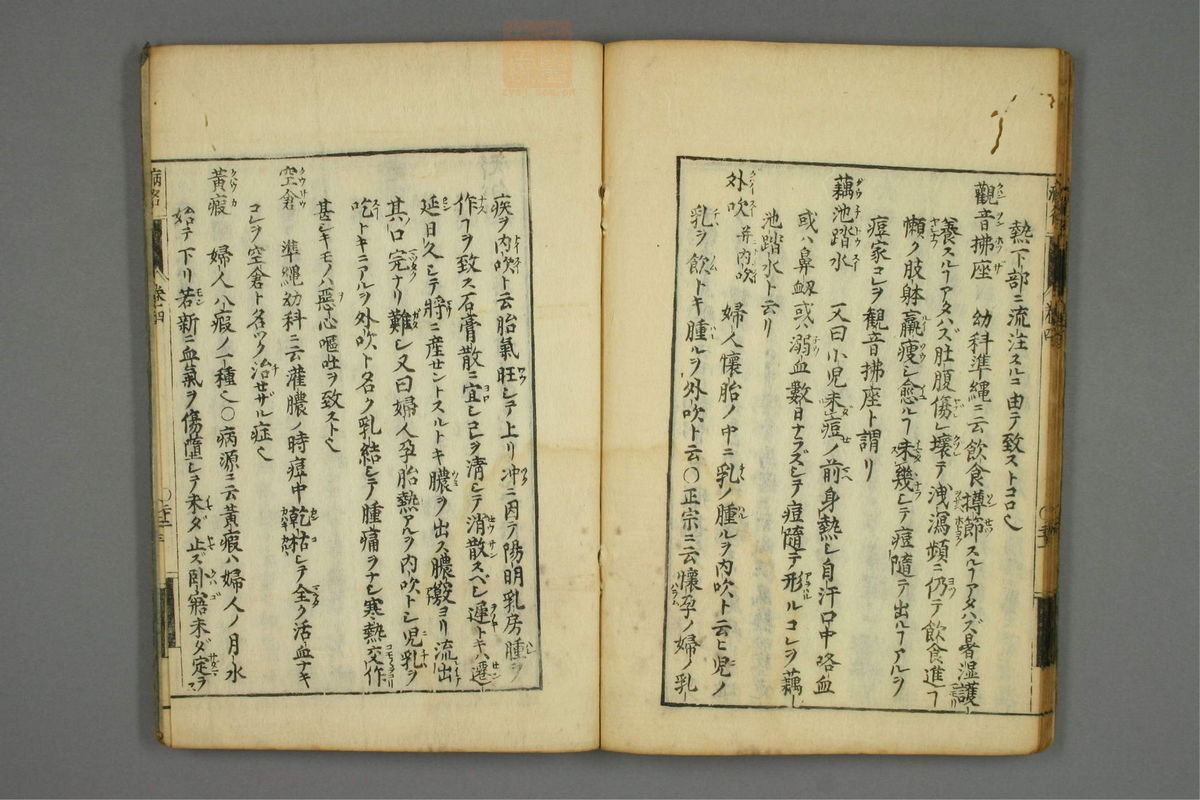 熱下部ニ流注スルニ由テ致ストコロ也
觀音拂座　幼科準縄ニ云飲食撙節スルヿアタハズ暑湿護
養スルヿアタハズ肚腹傷レ壊テ洩瀉頻ニ仍テ飲食進ヿ
懶ク肢躰羸痩シ愈ルヿ未幾シテ痘隨テ出ルヿアルヲ
痘家コレヲ観音拂座ト謂リ
藕池踏水　又曰小児未痘ノ前身熱シ自汗口中咯血
或ハ鼻衂或ハ溺血數日ナラズシテ痘隨テ形ルコレヲ藕
池踏水ト云リ
外吹 并内吹　婦人懷胎ノ中ニ乳ノ腫ルヲ内吹ト云ヒ児ノ
乳ヲ飲トキ腫ルヲ外吹ト云○正宗ニ云懷孕ノ婦ノ乳
疾ヲ内吹ト云胎氣旺シテ上リ冲ニ因テ陽明乳房腫ヲ
作ヿヲ致ス石膏散ニ宜シコレヲ清シテ消散スベシ遲トキハ遷
延日久シテ將ニ産セントスルトキ膿ヲ出ス膿ヨリ流出
其口完ナリ難シ又曰婦人孕胎熱アルヲ内吹トシ児乳ヲ
吃トキニアルヲ外吹ト名ク乳結シテ腫痛ヲナシ寒熱交作
甚シキモノハ惡心嘔吐ヲ致スト也
空倉　準縄幼科ニ云灌膿ノ時痘中乾枯シテ全ク活血ナキ
コレヲ空倉ト名ツク治セザル症也
黃瘕　婦人八瘕ノ一種也○病源ニ云黃瘕ハ婦人ノ月水
始テ下リ若新ニ血氣ヲ傷墮シテ未ダ止ズ臥寤未ダ定ラ
病名
卷十四